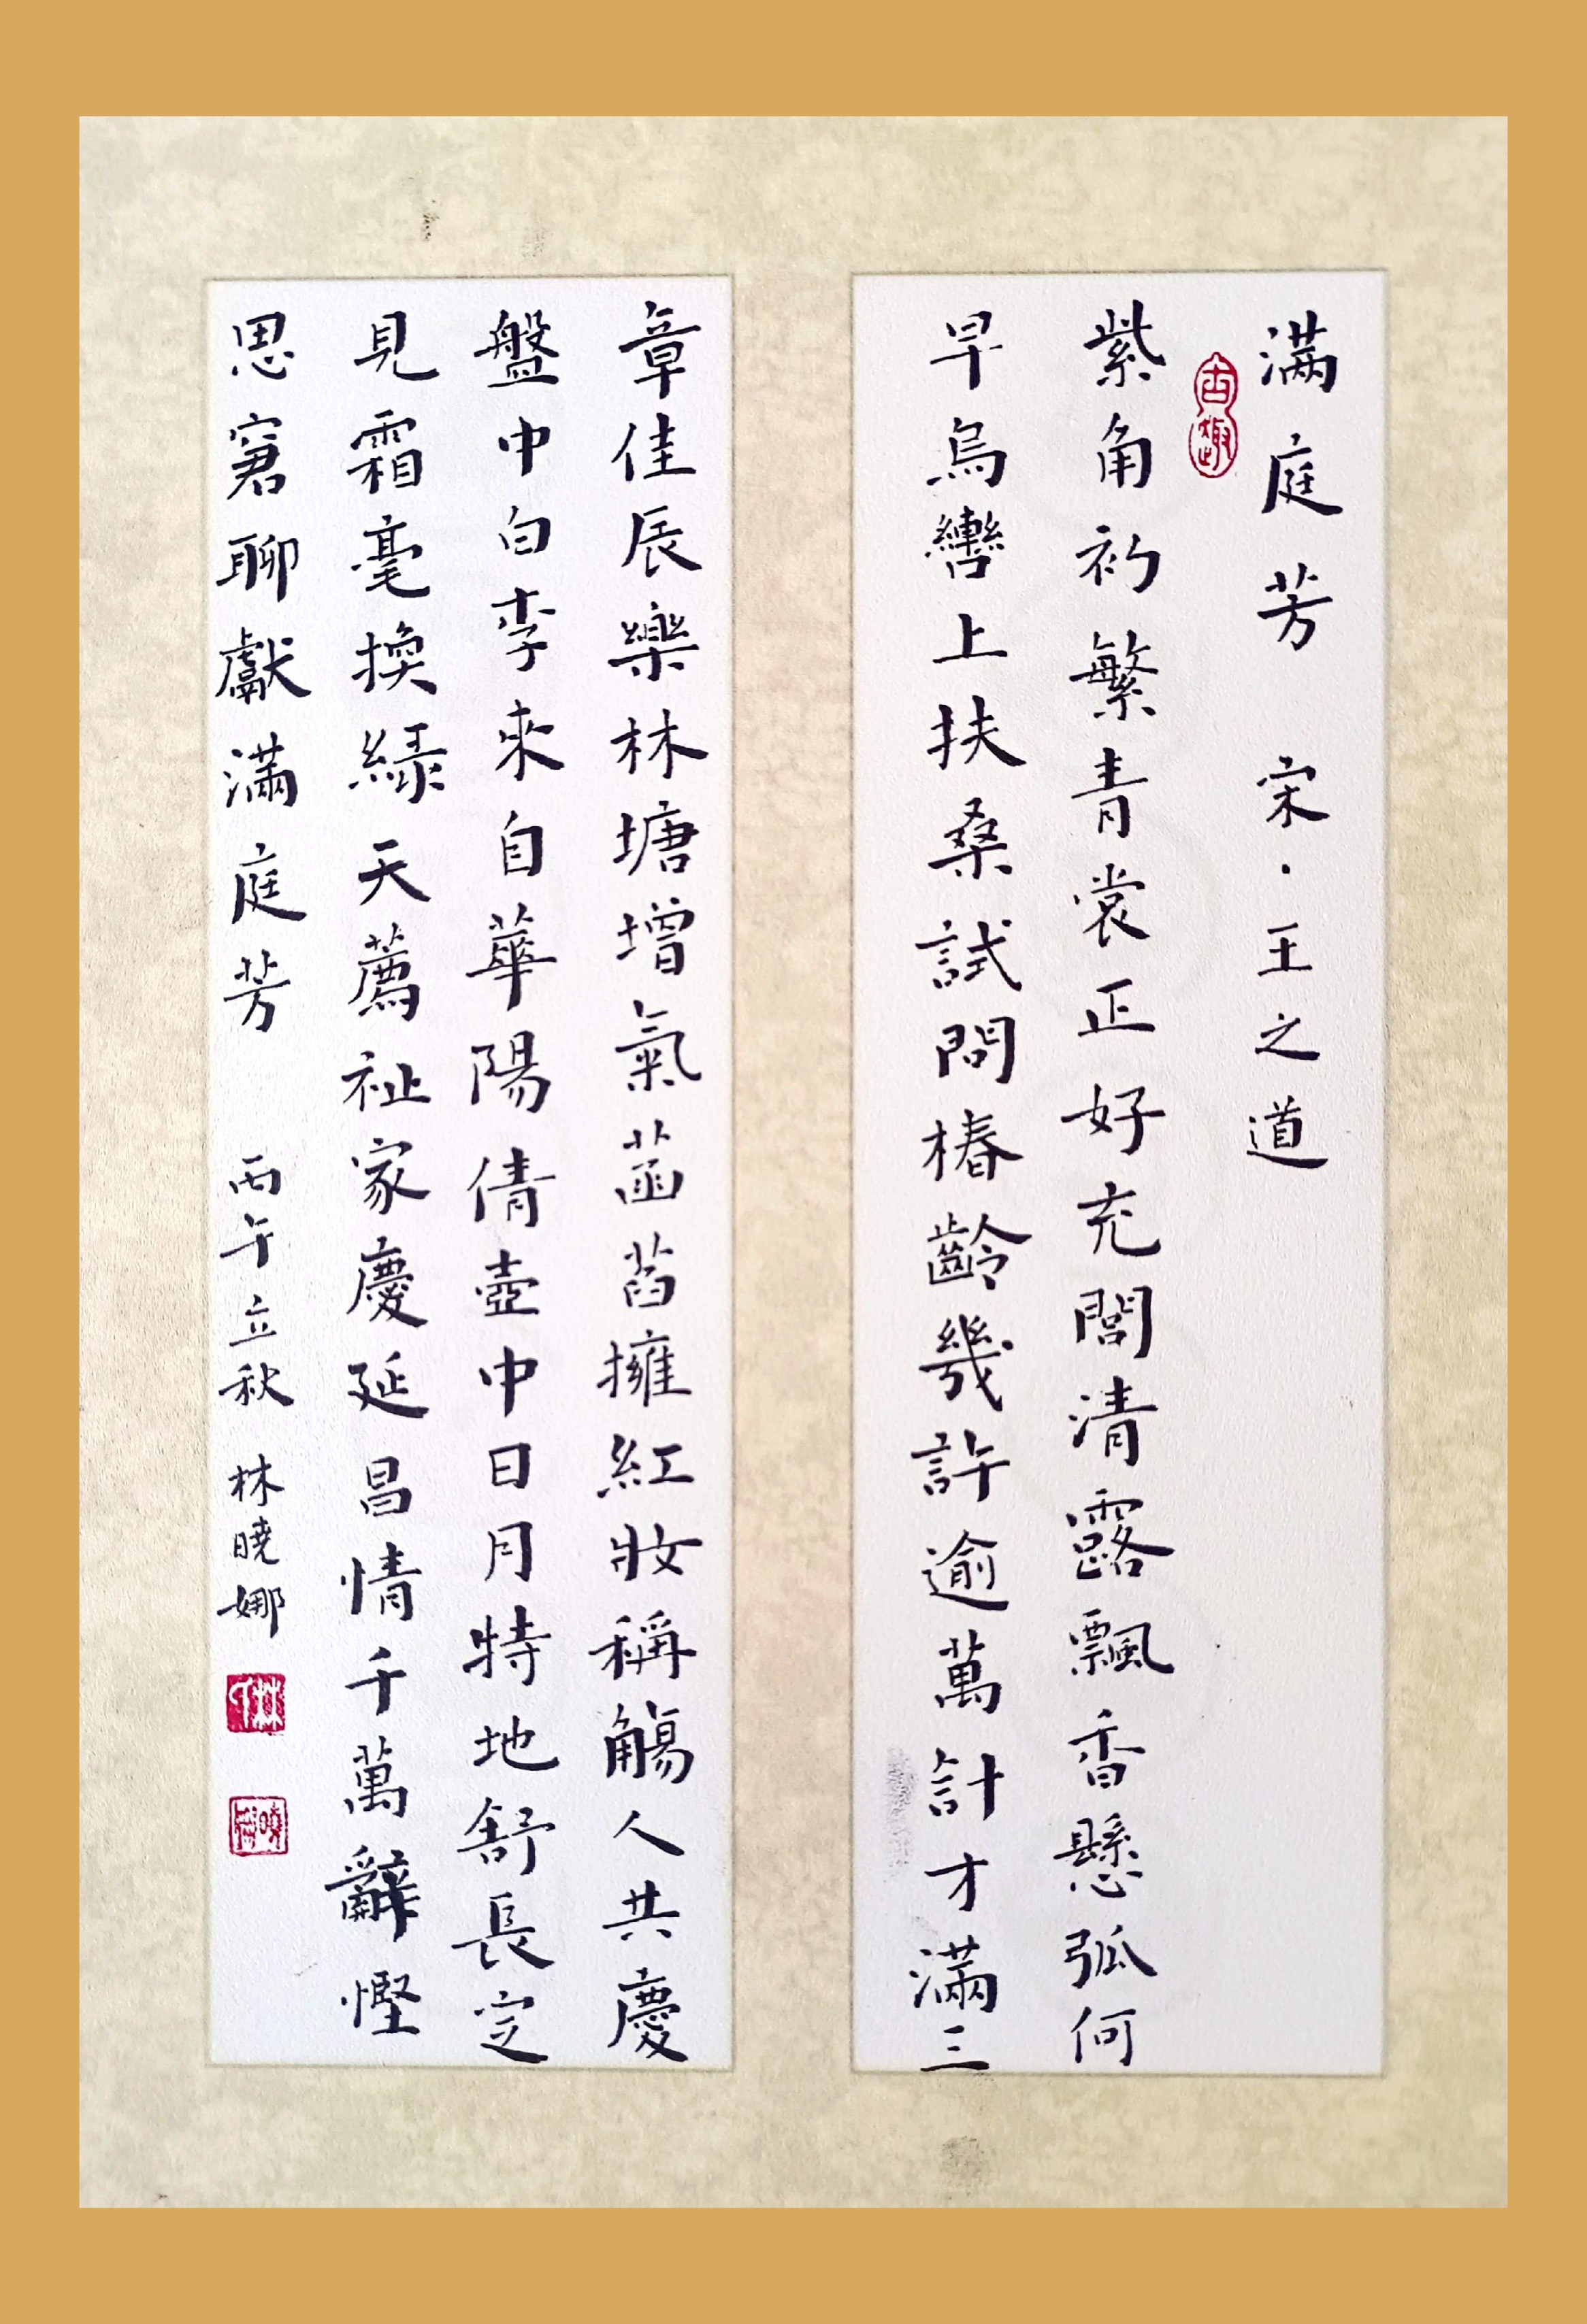 满庭芳 宋·王之道
古趣
紫角初繁青裳正好充閭清露飄香懸弧何
早烏轡上扶桑試問椿齡幾許逾萬計才滿三
章佳辰樂林塘增氣菡萏擁紅妝稱觴人共慶
盤中白李來自華陽倩壺中日月特地舒長定
見霜毫換綠天薦祉家慶延昌情千萬辭慳
思窘聊獻滿庭芳 丙午立秋 林曉娜